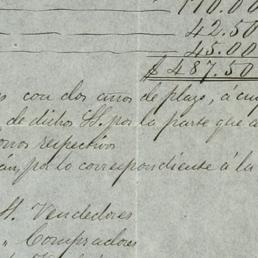 110.00
42.50
45.00
$ 487.50
con dos años de plazo, á
de dichos SS. por la parte que
respectivo
por lo correspondiente á la
Vendedores
" Compradores